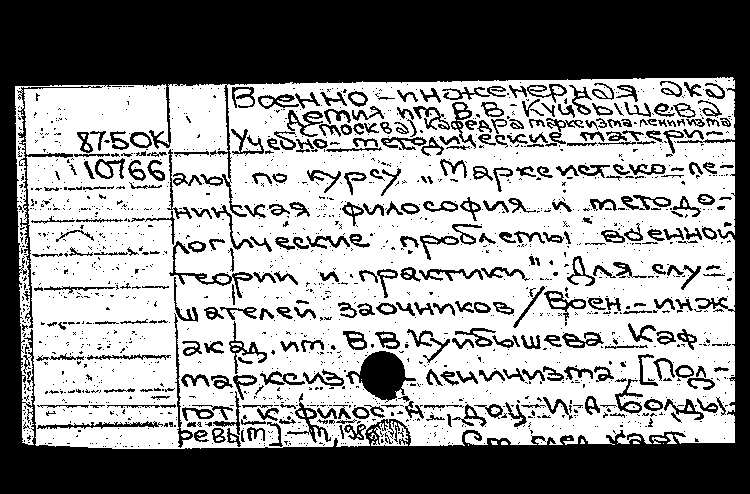 Военно-инженерная ака-
демия им. В.В. Куйбышева
(Москва). Кафедра марксизма-ленинизма
87-50К Учебно-методические матери-
10766 алы по курсу „Марксистско-ле-
нинская философия и методо-
логические проблемы военной
теории и практики": Для слу-
шателей заочников / Воен.-инж.
акад. им. В.В. Куйбышева. Каф.
марксизма-ленинизма; [Под-
гот. к. филос. н., доц. И.А. Болды-
ревым]. – М., 1986
См. след. карт.